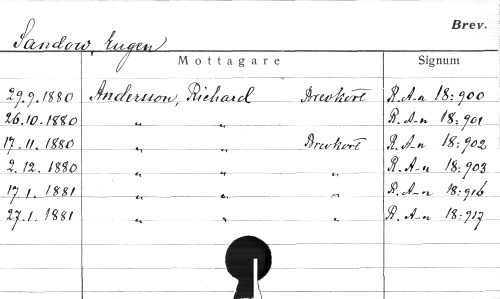 Brev.
Sandow, Eugen
Mottagare Signum
29.9.1880 Andersson, Richard Brevkort R.A-n 18:900
26.10.1880 " " R.A-n 18:901
17.11.1880 " " Brevkort R.A-n 18:902
2.12.1880 " " " R.A-n 18:903
17.1.1881 " " " R.A-n 18:916
27.1.1881 " " " R.A-n 18:917